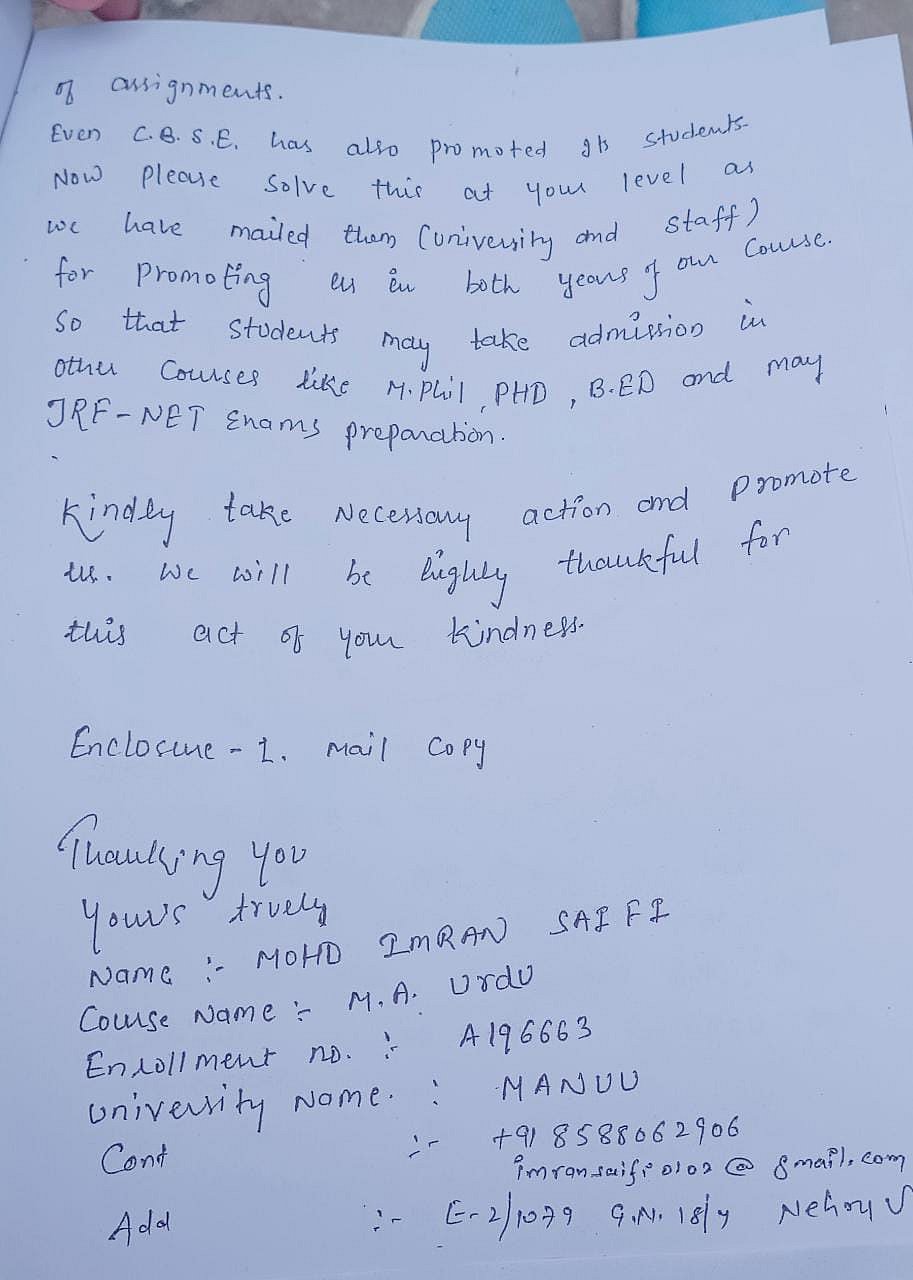 of assignments.
Even C.B.S.E. has also promoted its students.
Now please solve this at your level as
we have mailed them (university and staff)
for promoting us in both years of our course.
So that students may take admission in
other courses like M.Phil, PHD, B.ED and may
JRF-NET Exams preparation.
Kindly take necessary action and promote
us. We will be highly thankful for
this act of your kindness.
Enclosure - 1. Mail Copy
Thanking you
Your's truely
Name :- MOHD IMRAN SAIFI
Course Name :- M.A. Urdu
Enrollment no. :- A196663
University Name. : MANUU
Cont :- +91 8588062906
imransaifi0102@gmail.com
Add :- E-2/1079 G.N. 18/y Nehru